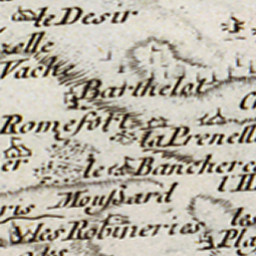 le Desir
zelle
Vache
Barthelot
Romefort
la Prenelle
er
le Bancherea
Moussard
ris
les Robineries
les
Pla